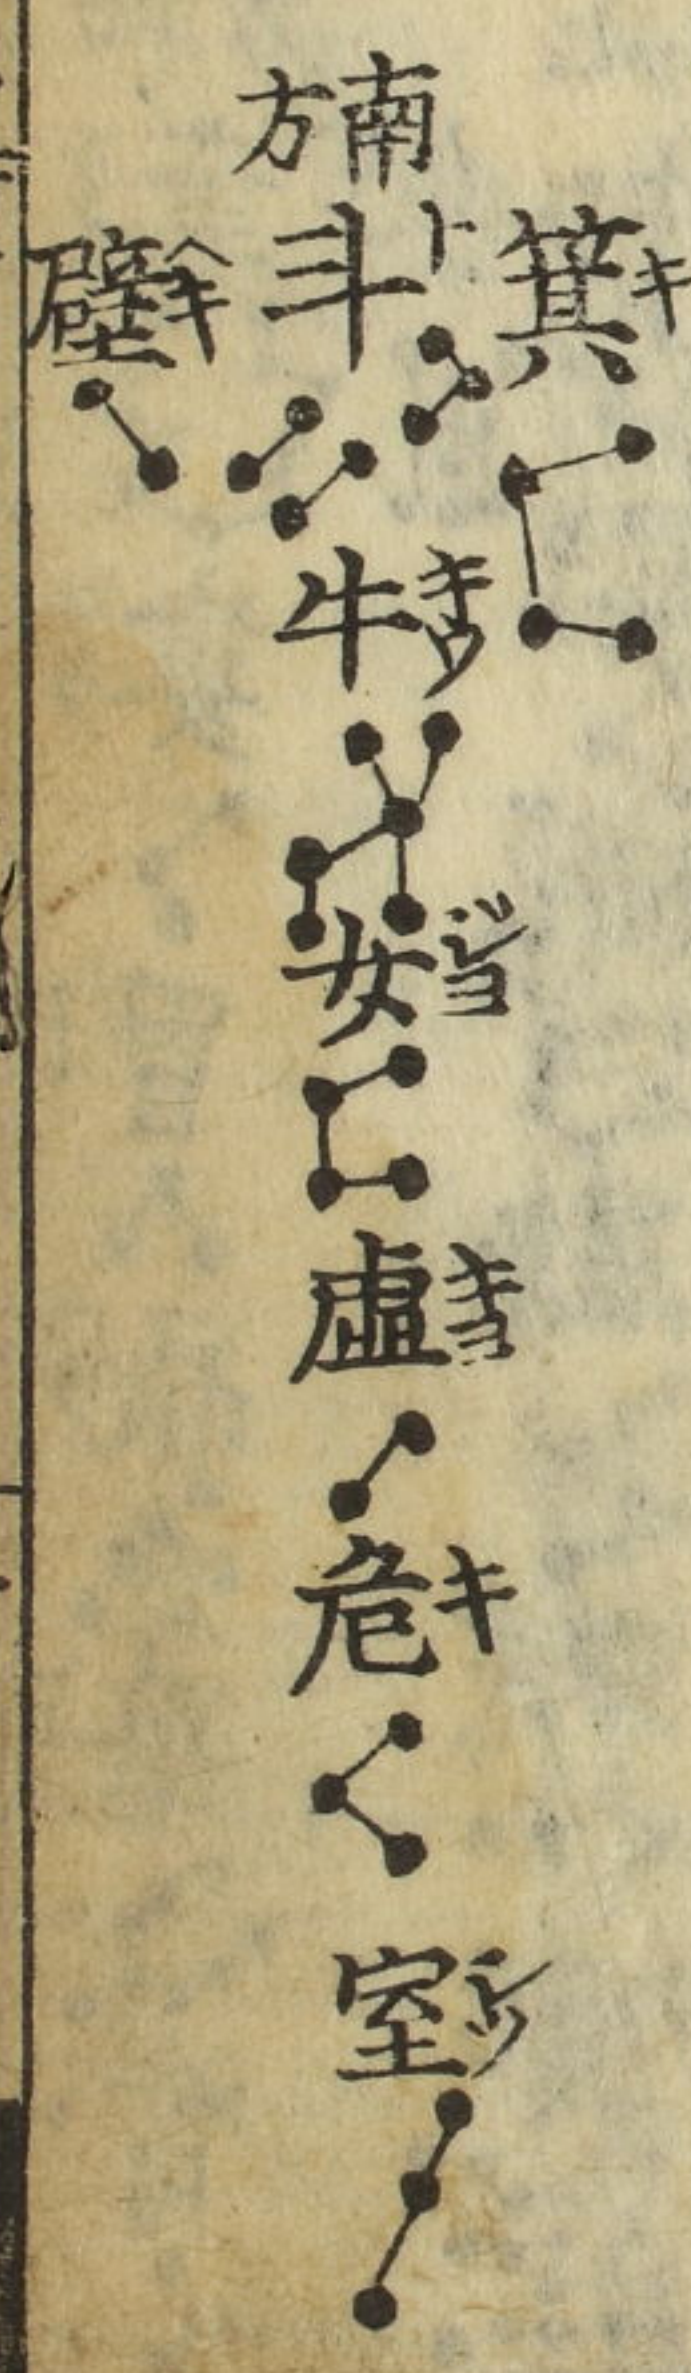 箕キ
南方
斗ト
牛キウ
女ジヨ
虚キヨ
危キ
室シツ
壁ヘキ